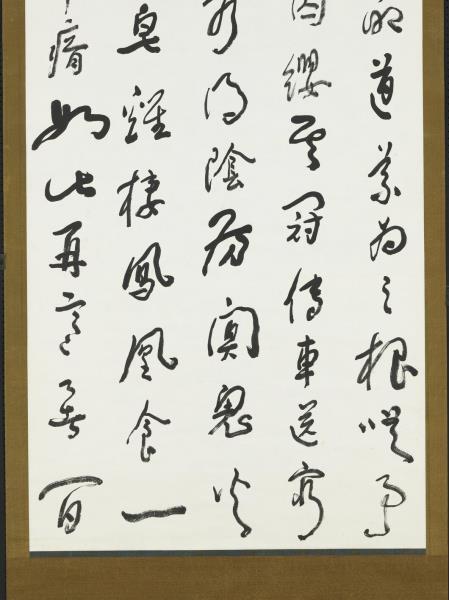 道義為之根嗟予
囚纓其冠傳車送窮
可得陰房闃鬼火
皂雞棲鳳凰食一
瘠如此再寒暑百